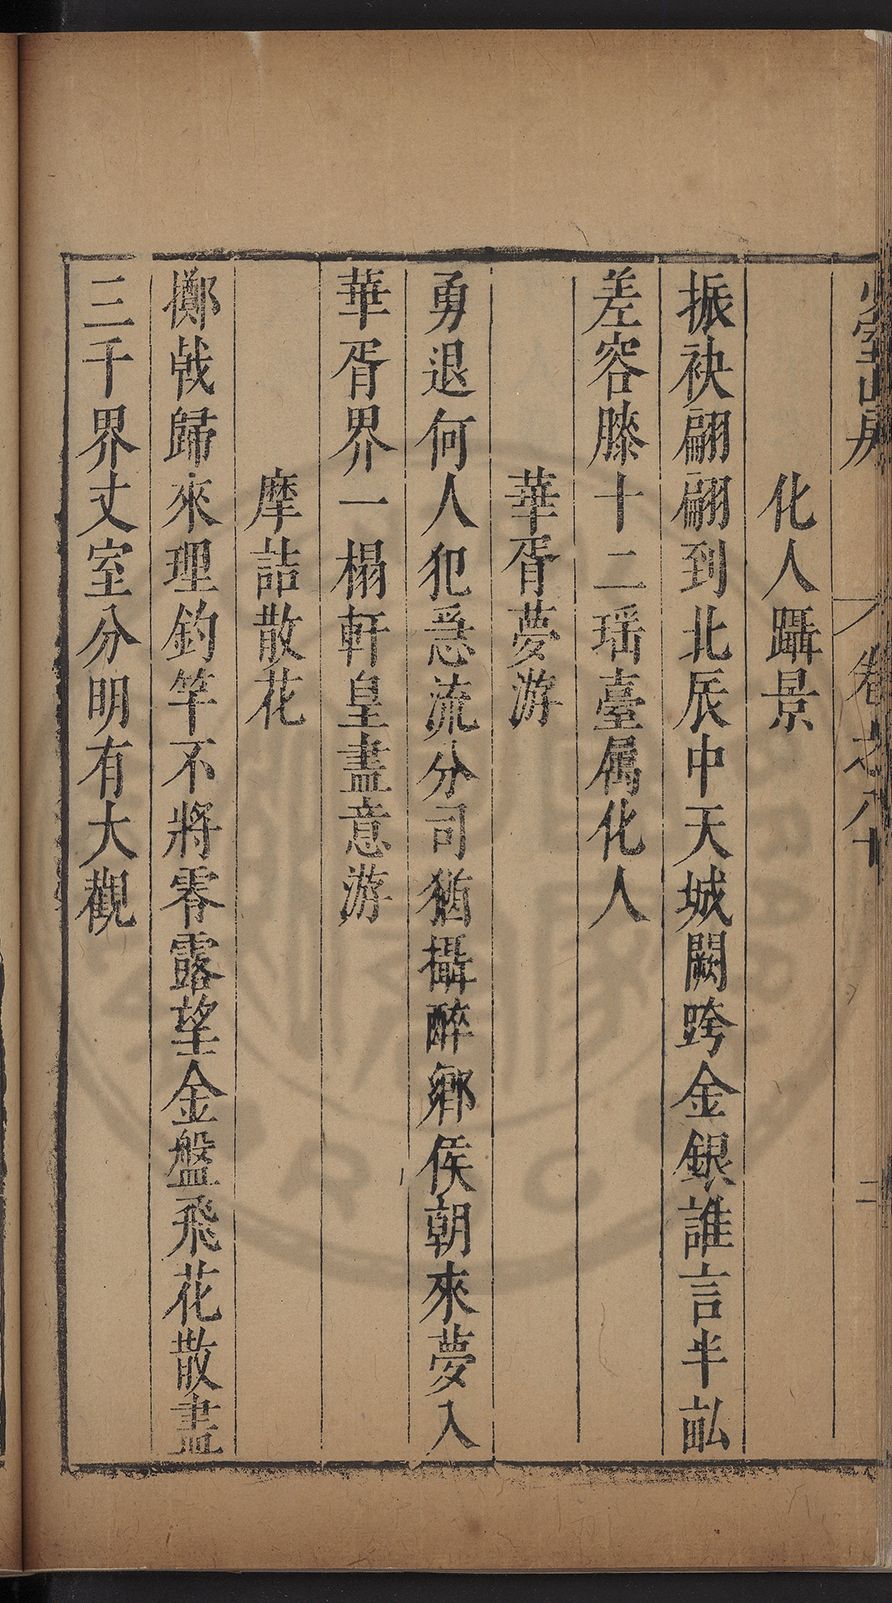 少室山房
卷之八十
二
化人躡景
振袂翩翩到北辰中天城闕跨金銀誰言半畝
差容膝十二瑶臺属化人
華胥夢游
勇退何人犯急流分司猶攝醉鄉侯朝來夢入
華胥界一榻軒皇盡意游
摩詰散花
擲戟歸來理釣竿不將零露望金盤飛花散盡
三千界丈室分明有大觀